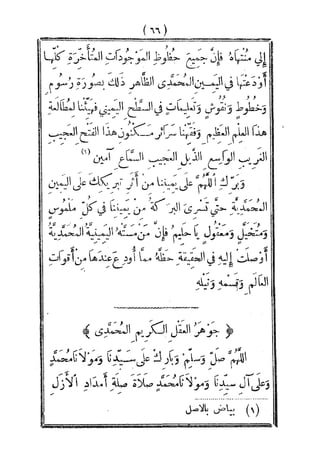 (٦٦)
إلى منتهاه فإن جميع حظوظ الموجودات المتأخرة كلها
أودعتها في اليمين المحمدى الظاهر ذلك بصورة رسوم
وخطوط ونقوش وتعليمات في السطح اليميني فهيئنا لمطالعة
هذا العلم العظيم وفقهنا سرائر مكنون هذا الفتح العجيب
الغريب الواسع الذيل العجيب السماع آمين (١)
وبرك اللهم على يميننا من أثر تبريكك على اليمين
المحمدية حتى تسرى البركة من يميننا في كل ملموس
ومتخيل ومعقول يا حليم فإن من مسته اليمينية المحمدية
أوصلت إليه في الحقيقة حظه مما أودع عندها من أقوات
العالم وقسمه ونيله
﴿ جوهر العقل الكريم المحمدى ﴾
اللهم صل وسلم وبارك على سيدنا ومولانا محمد
وعلى آل سيدنا ومولانا محمد صلاة صلة أمداد الأزل
(١) بياض بالاصل